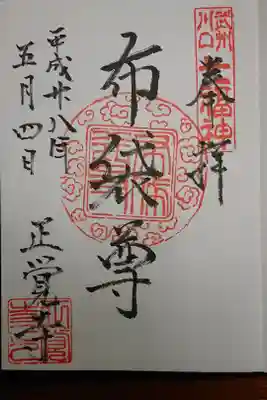 奉拝
武州
川口
七福神
布袋尊
平成廿八年
五月四日
正覚寺